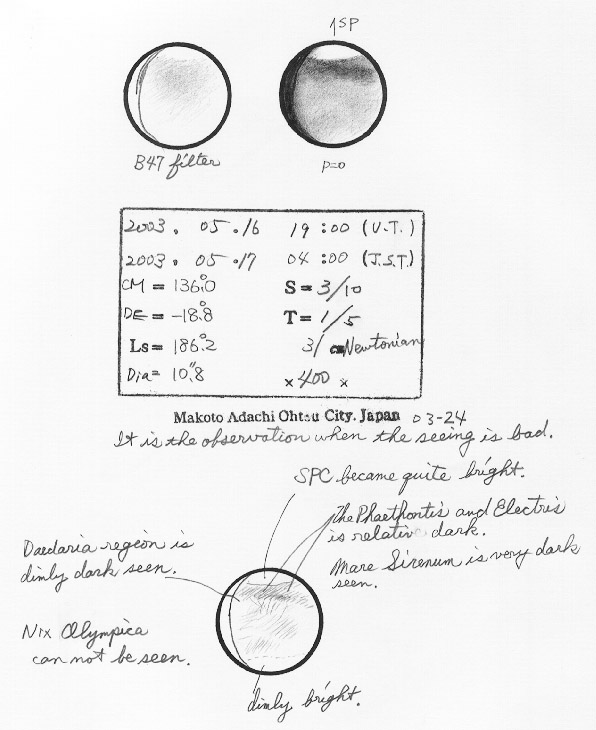 1SP
B47 filter
P=0
2003. 05. 16 19:00 (U.T.)
2003. 05. 17 04:00 (J.S.T.)
CM = 136.°0 S = 3/10
DE = -18.°8 T = 1/5
Ls = 186.°2 31 Newtonian
Dia = 10."8 ×400 ×
Makoto Adachi Ohtsu City. Japan 03-24
It is the observation when the seeing is bad.
SPC became quite bright.
The Phaethontis and Electris
is relativ dark.
Mare Sirenum is very dark
seen.
Daedaria region is
dimly dark seen.
Nix Olympica
can not be seen.
dimly bright.